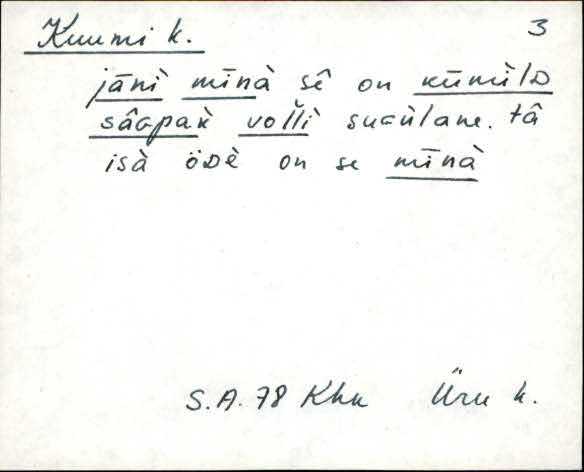 Kuumi k. 3
jānì mīnà sê on kūmùlD
sâapak̀ vollì suGùlane. tâ
isà öDè on se mīnà
S.A. 78 Khk Üru k.